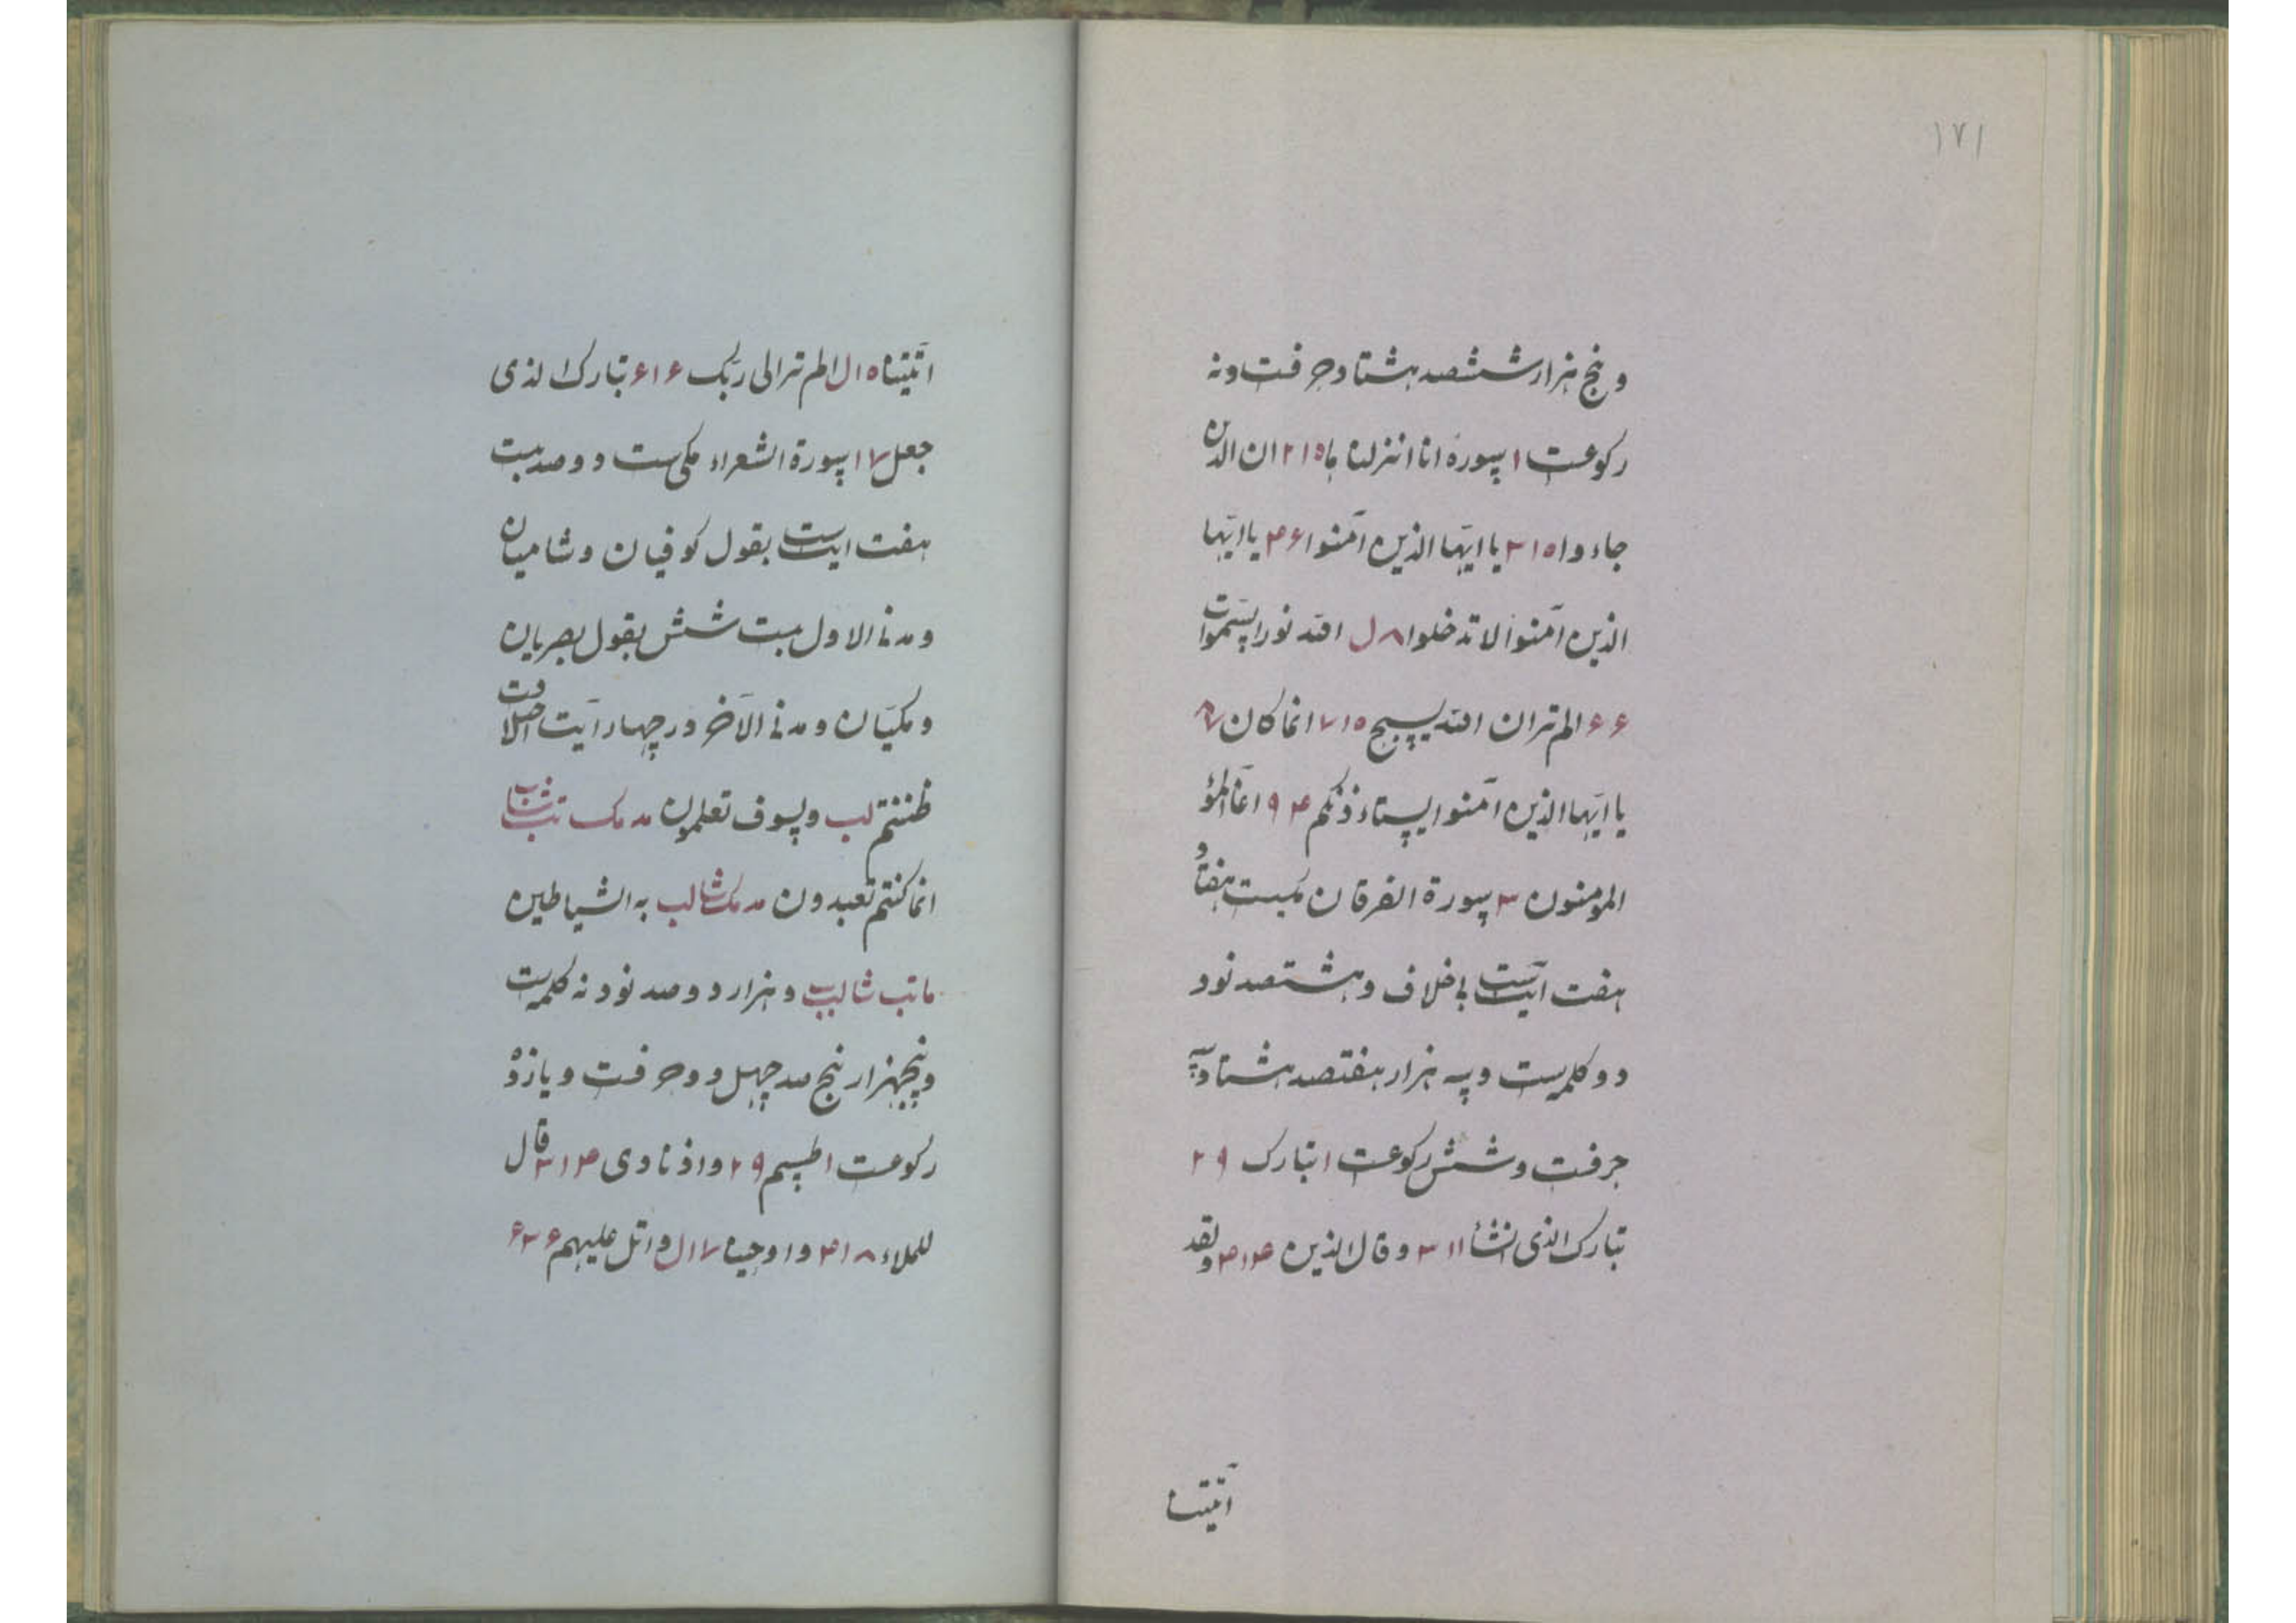 ۱۷۱
و پنج هزار ششصد هشتاد حرفست و نه
رکوعست ۱ سورة انا انزلناها ۱۵ ۲ ان الذین
جاءوا ۱۵ ۳ یا ایها الذین آمنوا ۶ ۴ یا ایها
الذین آمنوا لا تدخلوا ۸ ل الله نور السموات
۶ ۶ الم تر ان الله یسبح ۱۵ ۷ انما کان ۷ ۸
یا ایها الذین آمنوا لیستاءذنکم ۴ ۹ انما المؤ
المومنون ۳ سورة الفرقان مکیست هفتاد و
هفت آیتست بی خلاف و هشتصد نود
دو کلمه‌ست و سه هزار هفتصد هشتاد سه
حرفست و شش رکوعست ۱ تبارک ۹ ۲
تبارک الذی انشأ ۱۱ ۳ و قال الذین ۱۴ ۴ ولقد
آتینا
اتینا ۱۵ ل الم تر الی ربک ۱۶ ۶ تبارک الذی
جعل ۱۷ سورة الشعراء مکی‌ست دو صد بیست
هفت ایتست بقول کوفیان و شامیان
و مدنی الاول بیست شش بقول بصریان
و مکیان و مدنی الآخر در چهار آیت اختلافست
ظننتم لب و سوف تعلمون مد مک تب شاب
انما کنتم تعبدون مد مک شا لب به الشیاطین
ما تب شا لب و هزار دو صد نود نه کلمه‌ست
و پنجهزار پنج صد چهل دو حرفست و یازده
رکوعست ۱ طسم ۹ ۲ و اذ نادی ۲۴ ۳ قال
للملاء ۱۸ ۴ و اوحینا ۱۷ ل و اتل علیهم ۳۶ ۶